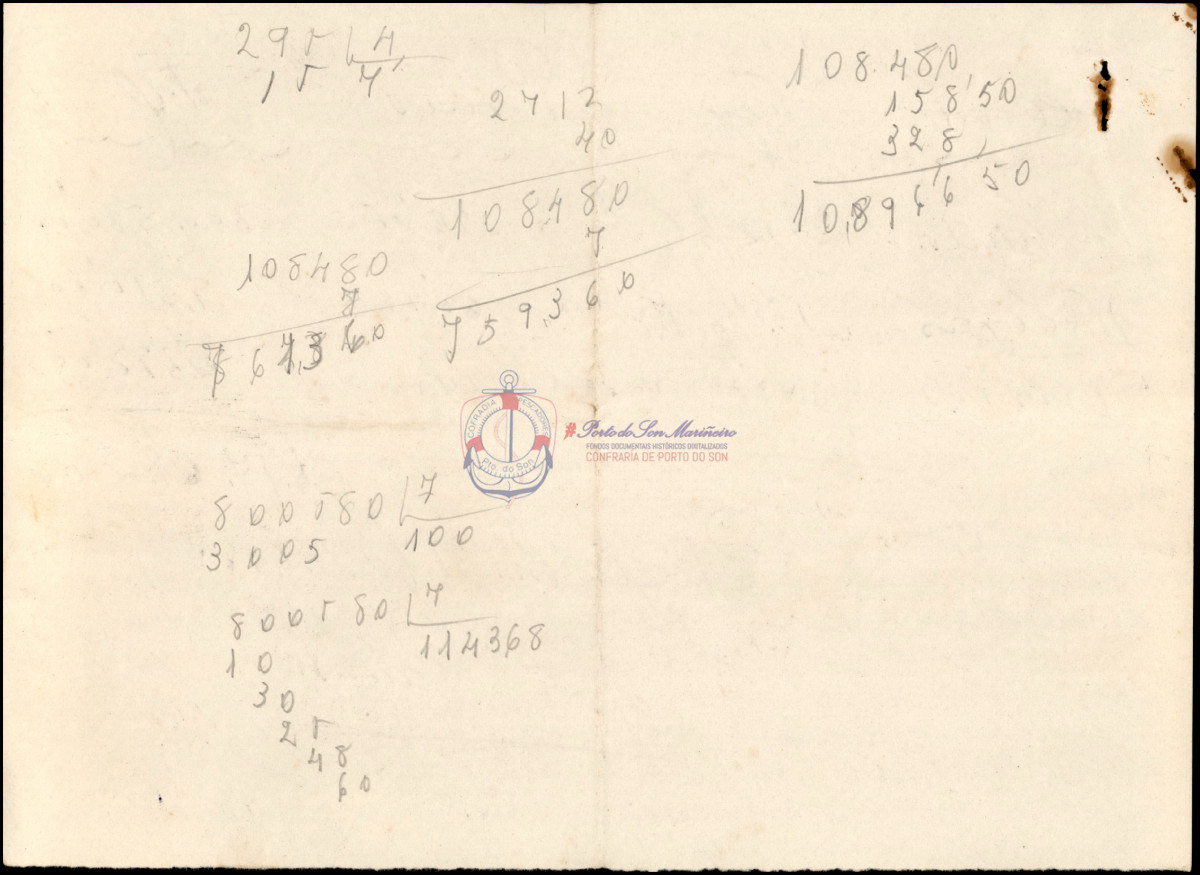 295 4
15 7
2712
40
108480
7
759.360
108.480
158,50
328,
10.8966 50
108480
7
COFRADIA PESCADORES
Pto. do Son
#Porto do Son Mariñeiro
FONDOS DOCUMENTAIS HISTÓRICOS DIXITALIZADOS
CONFRARÍA DE PORTO DO SON
800580 7
3005 100
800580 7
10 114368
30
25
48
60